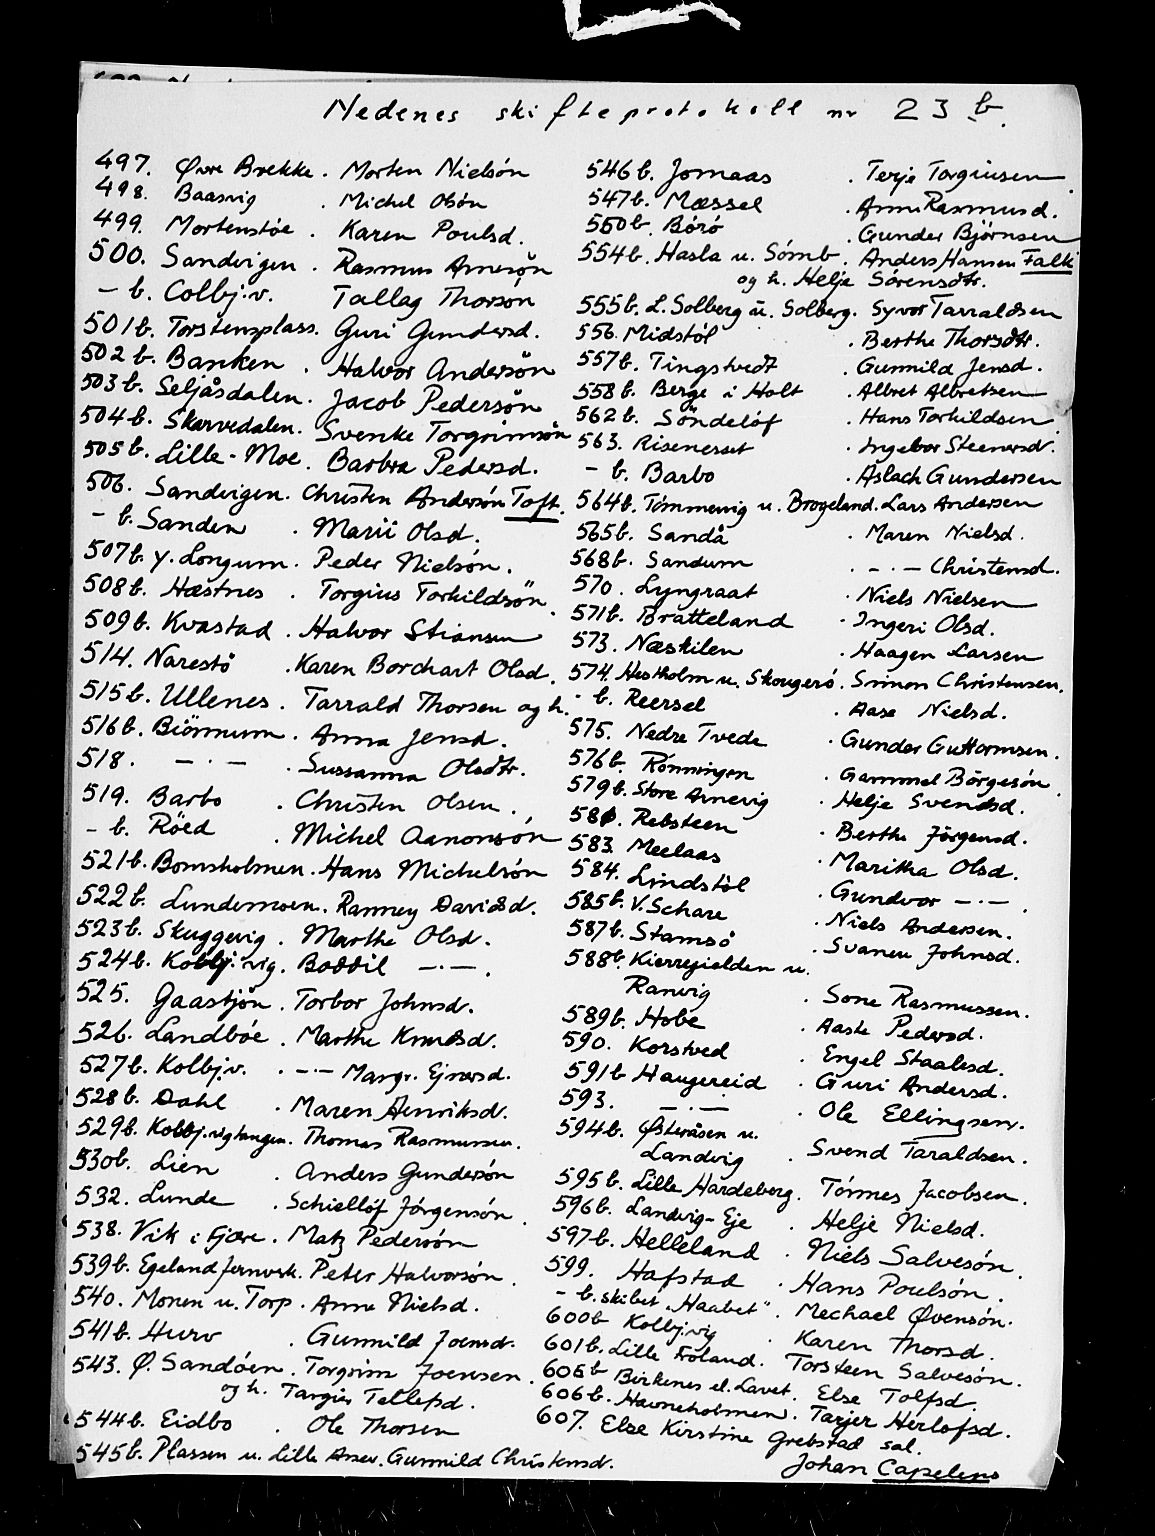 Nedenes skifteprotokoll nr 23 b.
497. Øvre Brekke. Morten Nielsón
498. Baasvig . Michel Olsón
499. Mortenstöe . Karen Poulsd.
500. Sandvigen . Rasmus Arnesön
– b. Colbj.v. Tallag Thorsón
501b. Torstensplass. Guri Gundersd.
502b. Banken . Halvor Andersön
503b. Seljåsdalen. Jacob Pedersön
504b. Skarvedalen. Svenke Torgrimsön
505b. Lille-Moe. Barbra Pedersd.
506. Sandvigen. Christen Andersón Toft.
– b. Sanden . Marii Olsd.
507b. Y. Longum. Peder Nielsón.
508b. Hæstnes . Torgius Torkildsön.
509b. Kvastad . Halvor Stiansen
514. Narestö . Karen Borchart Olsd.
515b. Ullenes. Tarrald Thorsen og h.
516b. Biörnum. Anna Jensd.
518. –·– . Sussanna Olsdtr.
519. Barbo . Christen Olsen.
– b. Röed . Michel Aanonsón
521b. Bomsholmen. Hans Michelsón
522b. Lundemoen. Ranney Davidsd.
523b. Skuggevig . Marthe Olsd.
524b. Kolbj.vig. Boddil –·–.
525. Gaastjön . Torbor Johnsd.
526. Landböe . Marthe Knudsd.
527b. Kolbj.v. . –·– Margr. Ejversd.
528b. Dahl . Maren Henriksd.
529b. Kolbj.vigtangen. Thomas Rasmussen.
530b. Lien . Anders Gundersón
532. Lunde . Schiellóf Jórgensón.
538. Vik i Fjære. Matz Pedersón
539b. Egeland Jernverk. Peter Halvorsón.
540. Monen u. Torp. Anne Nielsd.
541b. Hurv . Gunnild Joensd.
543. Ø. Sandóen. Torgrim Joensen.
og h. Targier Tellefsd.
544b. Eidbo . Ole Thorsen
545b. Plassen u. Lille Arsev. Gunnild Christensd.
546b. Jomaas . Terje Torgiusen.
547b. Mæssel . Anne Rasmusd.
550b. Börö . Gunder Björnsen
554b. Hasla u. Sómb. Anders Hansen Falk
og h. Helje Sórensdtr.
555b. L. Solberg u. Solberg. Syvor Tarraldsen
556. Midstöl . Berthe Thorsdtr.
557b. Tingstvedt . Gunnild Jensd.
558b. Berge i Holt . Albret Albretsen
562b. Söndelóf . Hans Torkildsen.
563. Risenesset . Ingebor Steenersd.
– b. Barbo . Aslach Gundersen
564b. Tómmervig u. Brogeland. Lars Andersen
565b. Sandå . Maren Nielsd.
568b. Sandum . –·– Christensd.
570. Lyngraat . Niels Nielsen
571b. Bratteland . Ingeri Olsd.
573. Næskilen . Haagen Larsen
574. Hestholm u. Skougeró. Simon Christensen.
– b. Reersel . Aase Nielsd.
575. Nedre Tvede . Gunder Guttormsen.
576b. Rónningen . Gammel Börgesón
579b. Store Arnevig . Helje Svendsd.
580. Rebsteen . Berthe Jörgensd.
583. Meelaas . Maritha Olsd.
584. Lindstöl . Gundvor –·–.
585b. V. Schare . Niels Andersen.
587b. Stamsö . Svaneu Johnsd.
588b. Kierregielden u.
Ranvig . Sone Rasmussen.
589b. Hobe . Aaste Pedersd.
590. Korstved . Engel Staalesd.
591b Haugereid . Guri Andersd.
593. –·– . Ole Ellingsen.
594b. Østeråsen u.
Landvig . Svend Taraldsen.
595b. Lille Hardeberg. Tórmes Jacobsen.
596b. Landvig-Eje . Helje Nielsd.
597b. Helleland . Niels Salvesón.
599. Hafstad . Hans Poulsón.
– b. skibet „Haabet". Mechael Øvensón.
600b Kolbj.vig . Karen Thorsd.
601b. Lille Froland. Torsteen Salvesón.
605b Birkenes el. Lavet. Else Tolfsd.
606b. Havneholmen. Tarjer Herlofsd.
607. Else Kirstine Grebstad sal.
Johan Capelens